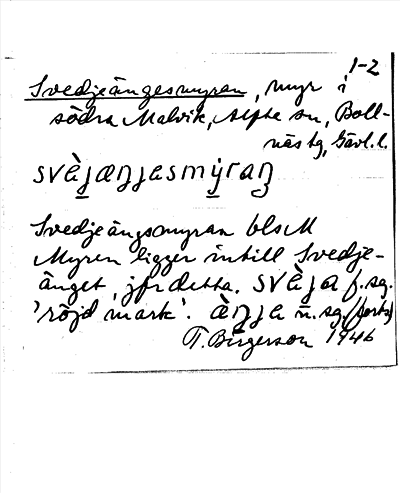 1-2
Svedjeängesmyran, myr i
södra Malvik, Alfta sn, Boll-
näs tg, Gävl. l.
svèjæŋjesmýraŋ
Svedjeängsmyran blsM
Myren ligger intill Svedje-
änget, jfr detta. svèja f. sg.
'röjd mark'. æ̀ŋja n. sg. (forts)
T. Birgerson 1946